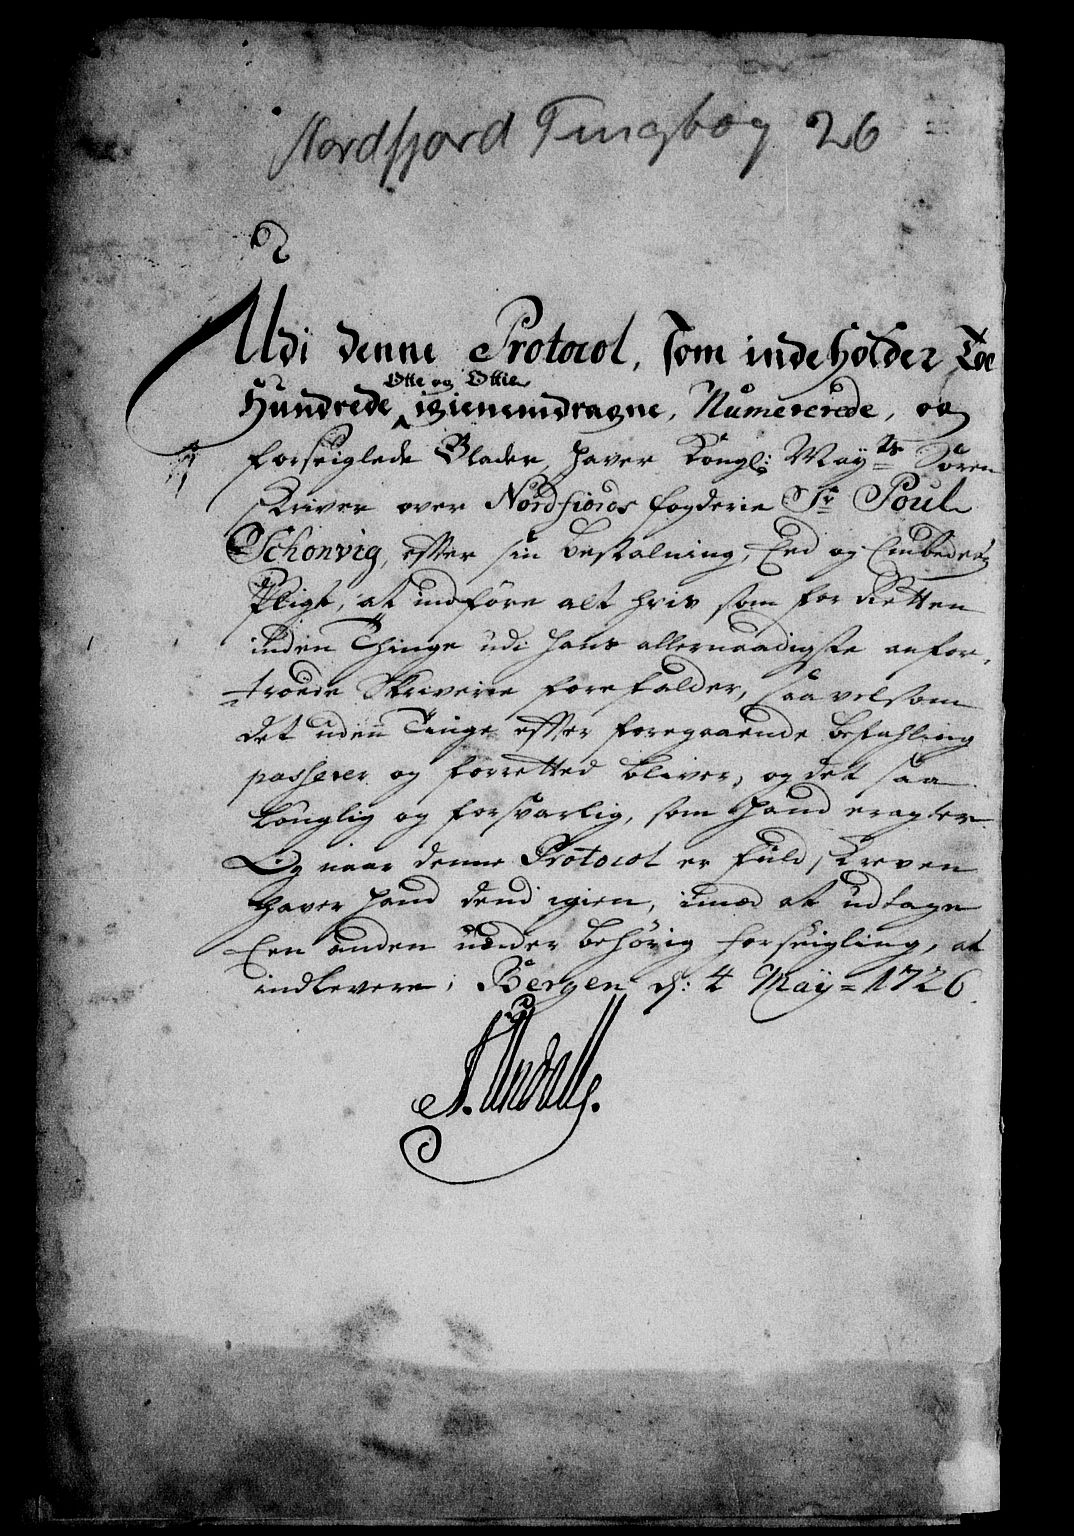 Nordfjord Tingbog 26
Udi denne Protocol, som indeholder Toe
Hundrede Otte og Ottie igienemdragne, Numererede, og
forseiglede Blader, haver Kongl: Mayts Soren
skriver over Nordfiords fogderie Sr Poul
Schonvig, efter sin bestalning, Eed og Embeds
Pligt, at indføre alt hvis som for Retten
inden Thinge udi hans allernaadigste anfor„
troede Skriverie forefalder, saavelsom
det uden Tinge efter foregaaende befahling
passerer og forretted bliver, og det saa
louglig og forsvarlig, som hand eragter.
Og naar denne Protocol er fuld skreven
haver hand dend igien, imod at udtage
Een anden under behørig forseigling, at
indlevere; Bergen d: 4 May = 1726.